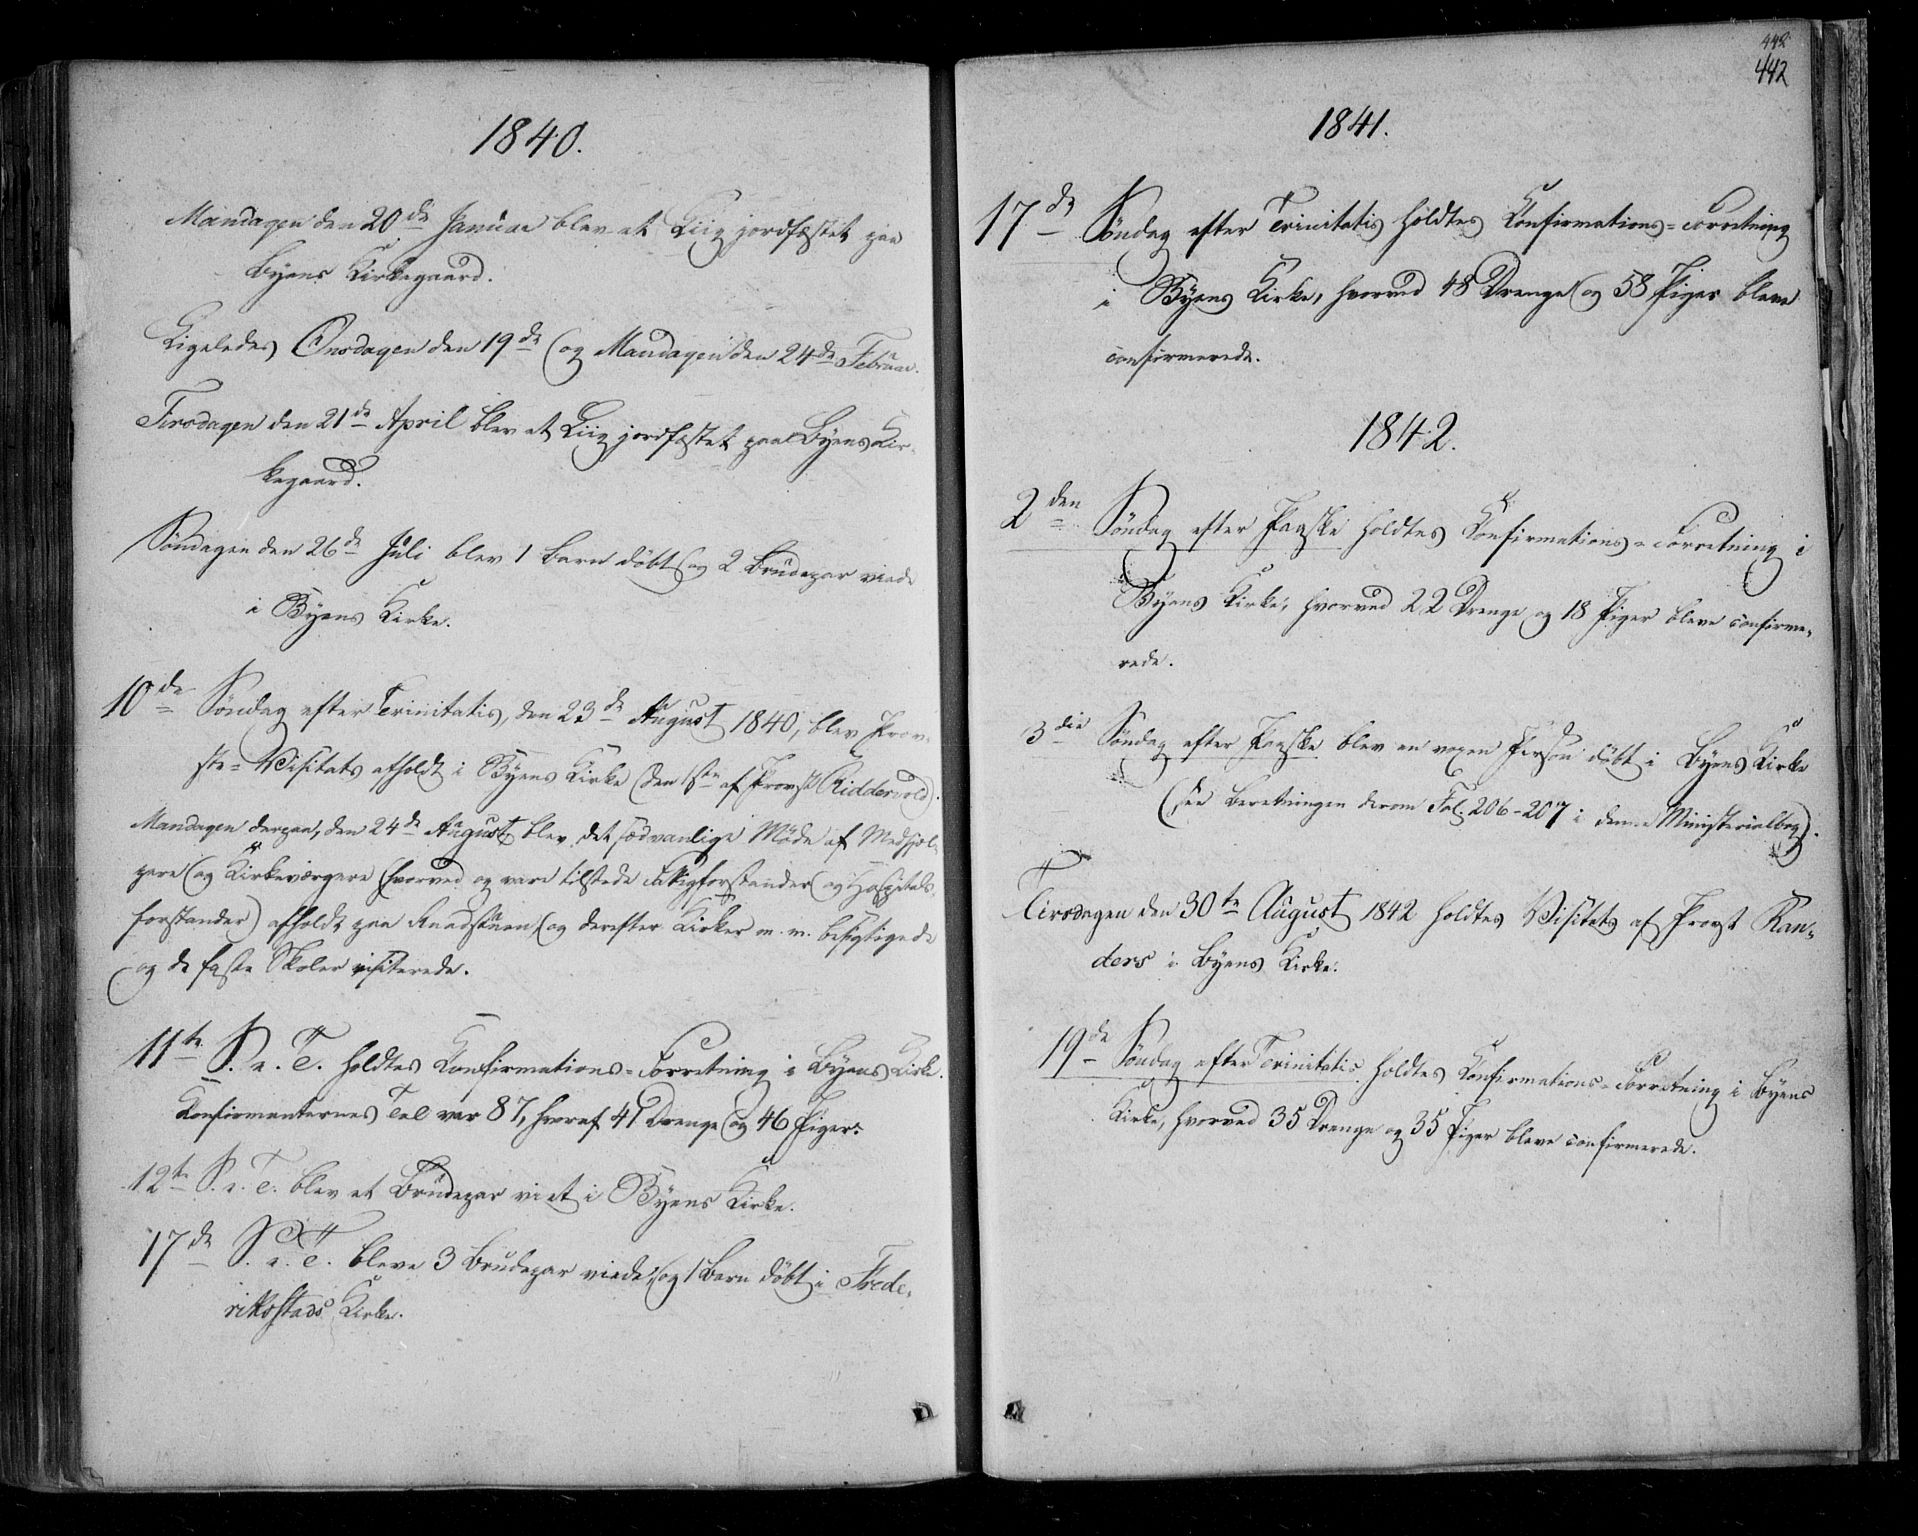 1840.
Mandagen den 20de Januar blev et Liig jordfæstet paa
Byens Kirkegaard.
Ligeledes Onsdagen den 19de og Mandagen den 24de Februar.
Tirsdagen den 21de April blev et Liig jordfæstet paa Byens Kir-
kegaard.
Søndagen den 26de Juli blev 1 Barn døbt og 2 Brudepar viede
i Byens Kirke.
10de Søndag efter Trinitatis, den 23de August 1840, blev Prov-
ste-Visitats afholdt i Byens Kirke (den 1ste af Provst Riddervold).
Mandagen derpaa, den 24de August blev det sædvanlige Møde af Medhjæl-
pere og Kirkeværgere (hvorved og vare tilstede Fattigforstander og Hospitals-
forstander) afholdt paa Raadstuen, og derefter Kirker m.m. besigtigede
og de faste Skoler visiterede.
11te S. e. T. holdtes Konfirmations-Forretning i Byens Kirke.
Konfirmanternes Tal var 87, hvoraf 41 Drenge og 46 Piger.
12te S. e. T. blev et Brudepar viet i Byens Kirke.
17de S. e. T. bleve 3 Brudepar viede, og 1 Barn døbt i Frede-
rikstads Kirke.
442
442
1841.
17de Søndag efter Trinitatis holdtes Konfirmations-Forretning
i Byens Kirke, hvorved 48 Drenge og 58 Piger bleve
confirmerede.
1842.
2den Søndag efter Paaske holdtes Konfirmations-Forretning i
Byens Kirke, hvorved 22 Drenge og 18 Piger bleve confirme-
rede.
3die Søndag efter Paaske blev en voxen Person døbt i Byens Kirke
(see Beretningen derom Fol. 206-207 i denne Ministerialbog).
Tirsdagen den 30te August 1842 holdtes Visitats af Provst Ran-
ders i Byens Kirke.
19de Søndag efter Trinitatis holdtes Konfirmations-Forretning i Byens
Kirke, hvorved 35 Drenge og 35 Piger bleve confirmerede.